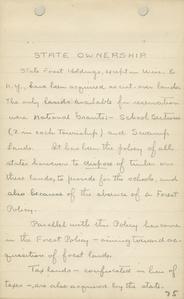 STATE OWNERSHIP
State Forest Holdings, except in Minn. &
N.Y., have been acquired as cut-over lands.
The only lands available for reservation
were National Grants - School Sections
(2 in each Township) and Swamp
Lands. It has been the policy of all
states however to dispose of timber on
these lands, to provide for the schools, and
also because of the absence of a Forest
Policy.
Parallel with this Policy has come
in the Forest Policy - aiming toward ac-
quisition of forest lands.
Tax lands - confiscated in lieu of
taxes - are also acquired by the state.
75